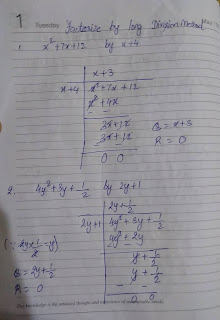 1
Factorise by long Division Method
1. x² + 7x + 12 by x + 4
x + 3
x + 4 x² + 7x + 12
x² + 4x
- -
3x + 12
3x + 12
- -
0 0
Q = x + 3
R = 0
2. 4y² + 3y + 1/2 by 2y + 1
2y + 1/2
2y + 1 4y² + 3y + 1/2
4y² + 2y
- -
y + 1/2
y + 1/2
- -
0 0
(∵ 2y × 1/2 = y)
Q = 2y + 1/2
R = 0